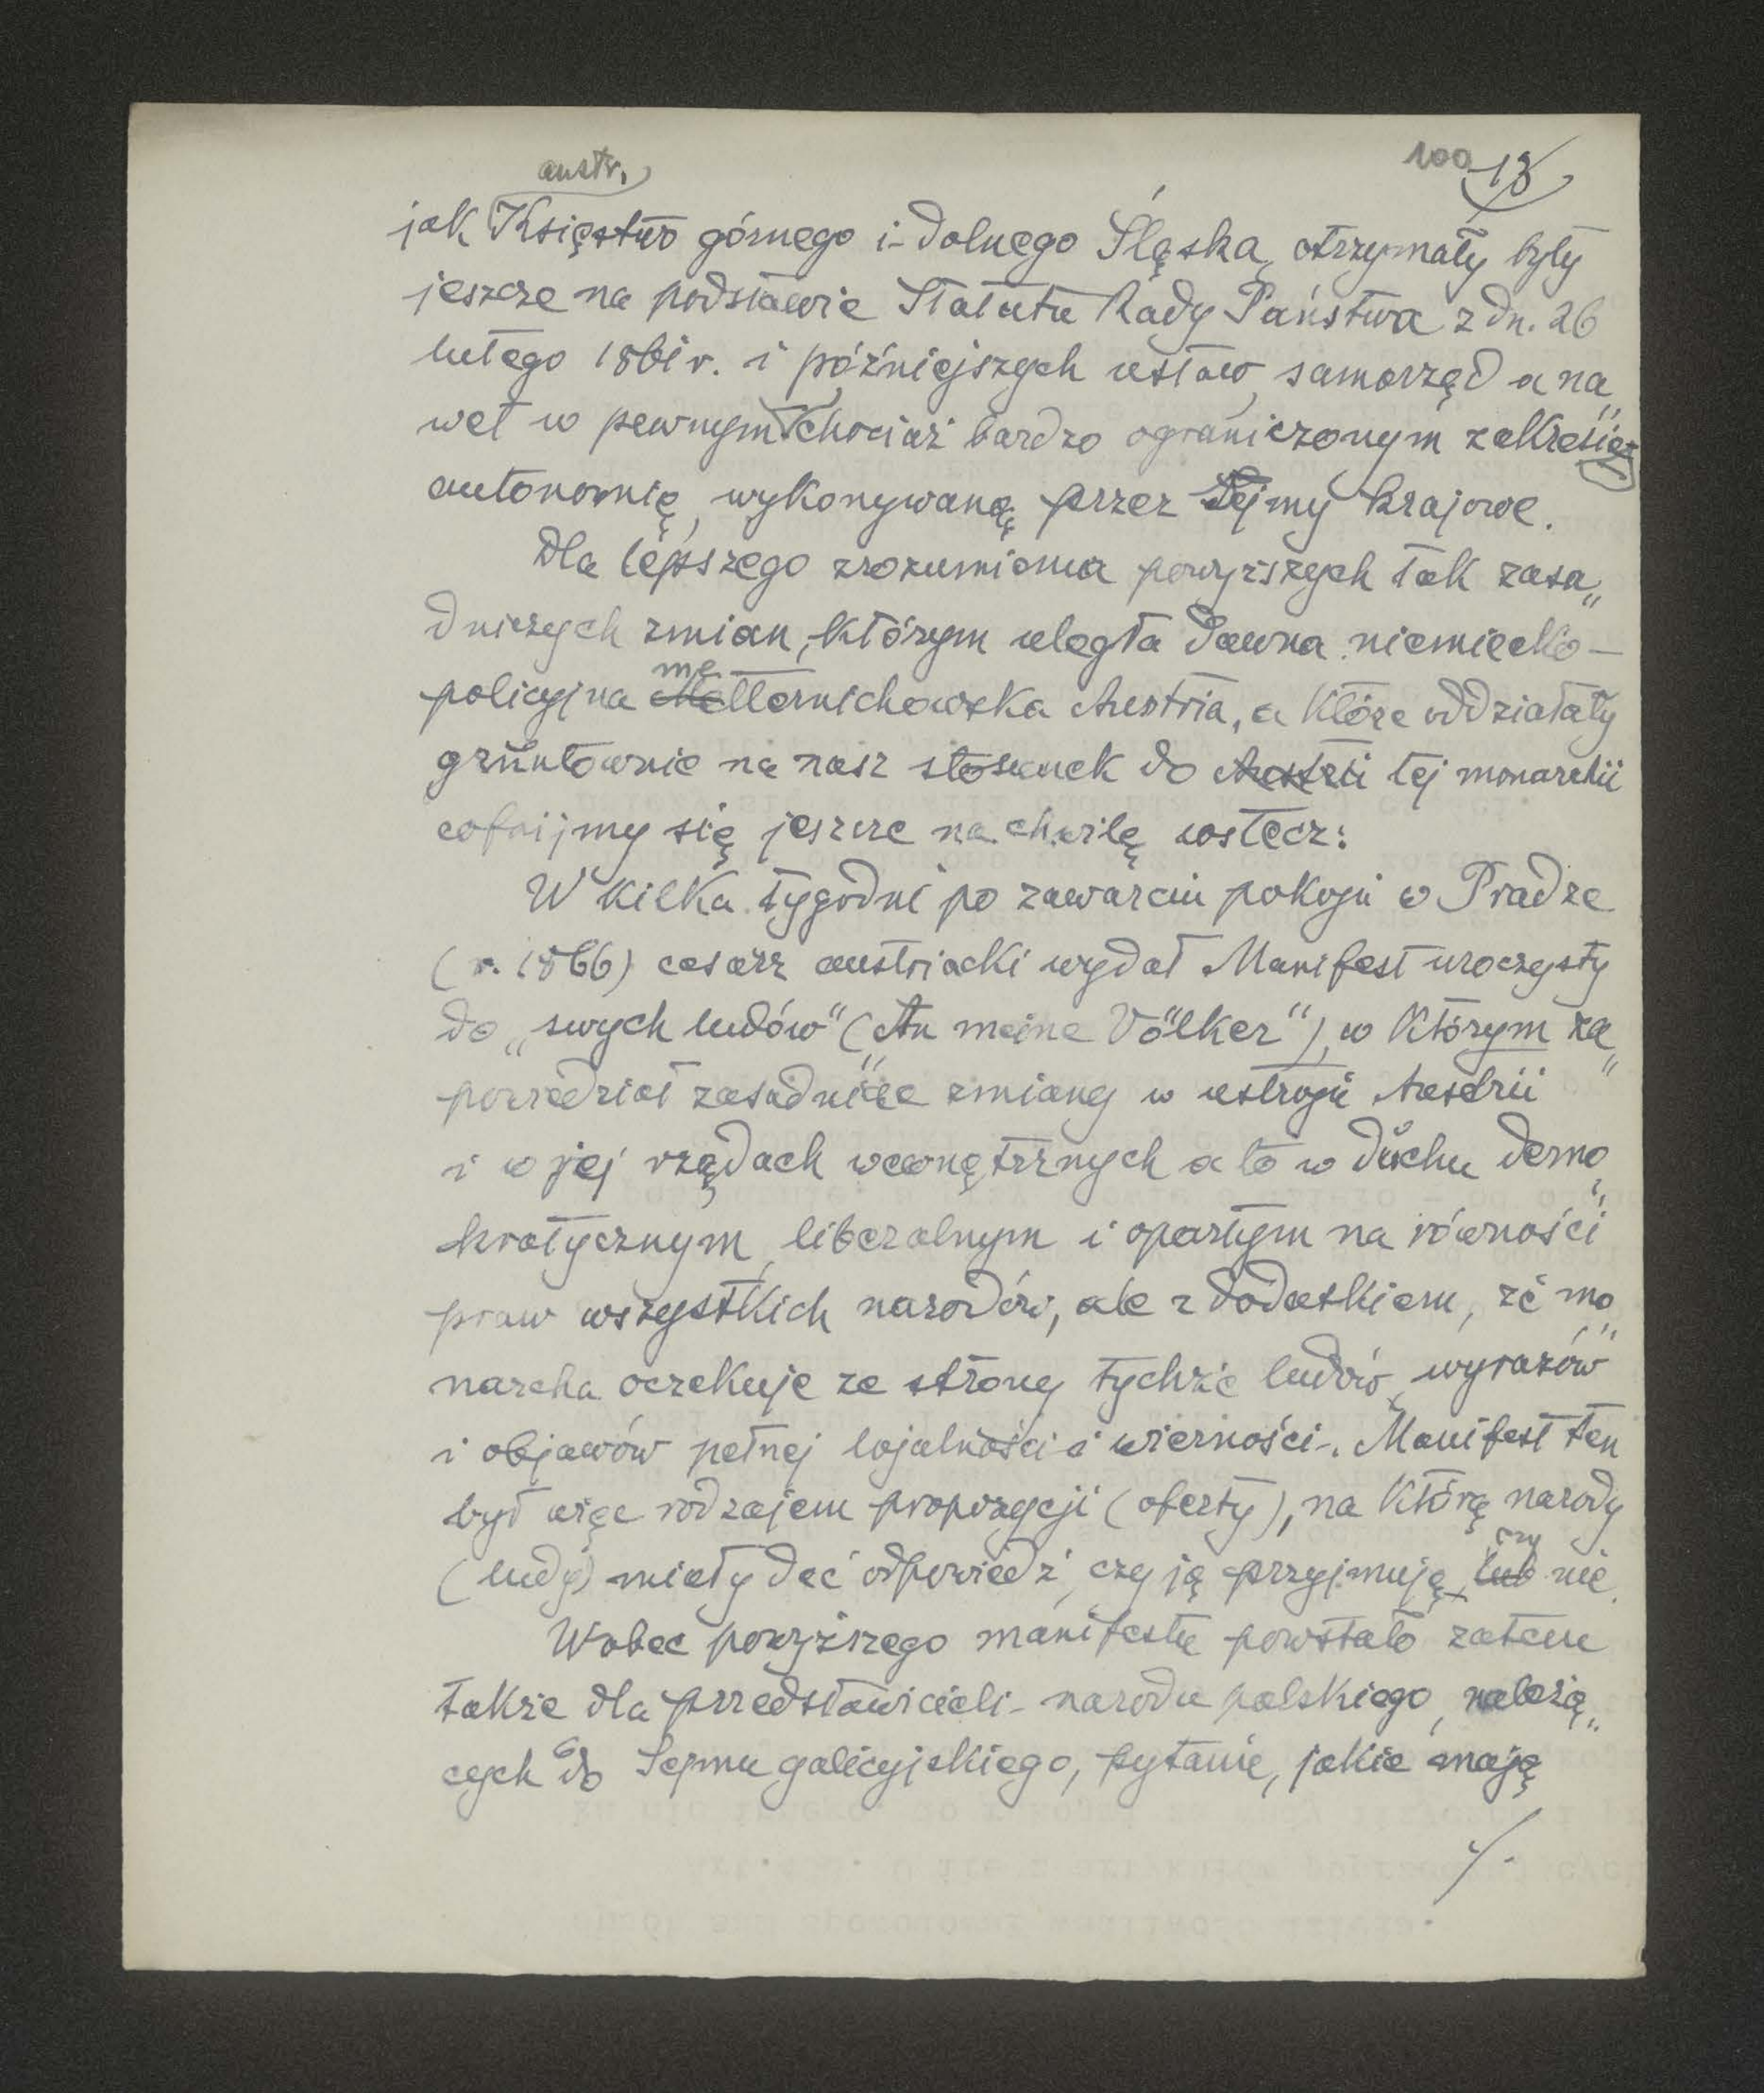 100 13
austr.
jak Księstwo górnego i dolnego Śląska, otrzymały były
jeszcze na podstawie Statutu Rady Państwa z dn. 26
lutego 1861 r. i późniejszych ustaw, samorząd a na„
wet w pewnym chociaż bardzo ograniczonym zakresie
autonomię, wykonywaną przez Sejmy krajowe.
Dla lepszego zrozumienia powyższych tak zasa„
dniczych zmian, którym uległa dawna niemiecko-
me
policyjna Metternichowska Austria, a które oddziałały
gruntownie na nasz stosunek do Austrii tej monarchii
cofnijmy się jeszcze na chwilę wstecz:
W kilka tygodni po zawarciu pokoju w Pradze
(r. 1866) cesarz austriacki wydał Manifest uroczysty
do „swych ludów" („An meine Völker"), w którym za„
powiedział zasadnicze zmiany w ustroju Austrii
i w jej rządach wewnętrznych a to w duchu demo„
kratycznym, liberalnym i opartym na równości
praw wszystkich narodów, ale z dodatkiem, że mo„
narcha oczekuje ze strony tychże ludów, wyrazów
i objawów pełnej lojalności i wierności. Manifest ten
był więc rodzajem propozycji (oferty), na którą narody
czy
(ludy) miały dać odpowiedź, czy ją przyjmują, lub nie.
Wobec powyższego manifestu powstało zatem
także dla przedstawicieli narodu polskiego, należą„
cych do Sejmu galicyjskiego, pytanie, jakie mają
./.